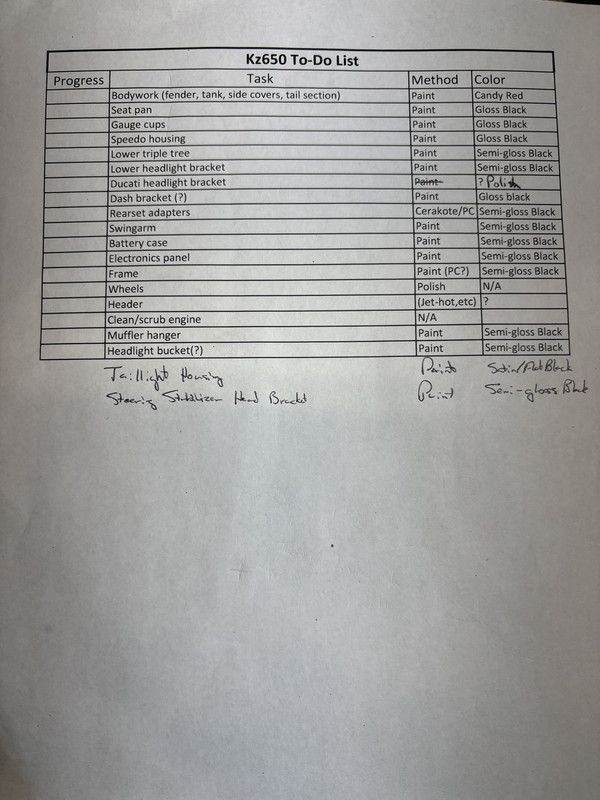 Kz650 To-Do List
Progress Task Method Color
Bodywork (fender, tank, side covers, tail section) Paint Candy Red
Seat pan Paint Gloss Black
Gauge cups Paint Gloss Black
Speedo housing Paint Gloss Black
Lower triple tree Paint Semi-gloss Black
Lower headlight bracket Paint Semi-gloss Black
Ducati headlight bracket Paint ? Polish
Dash bracket (?) Paint Gloss black
Rearset adapters Cerakote/PC Semi-gloss Black
Swingarm Paint Semi-gloss Black
Battery case Paint Semi-gloss Black
Electronics panel Paint Semi-gloss Black
Frame Paint (PC?) Semi-gloss Black
Wheels Polish N/A
Header (Jet-hot,etc) ?
Clean/scrub engine N/A
Muffler hanger Paint Semi-gloss Black
Headlight bucket(?) Paint Semi-gloss Black
Taillight Housing Paint Satin/Flat Black
Steering Stabilizer Bracket Paint Semi-gloss Black